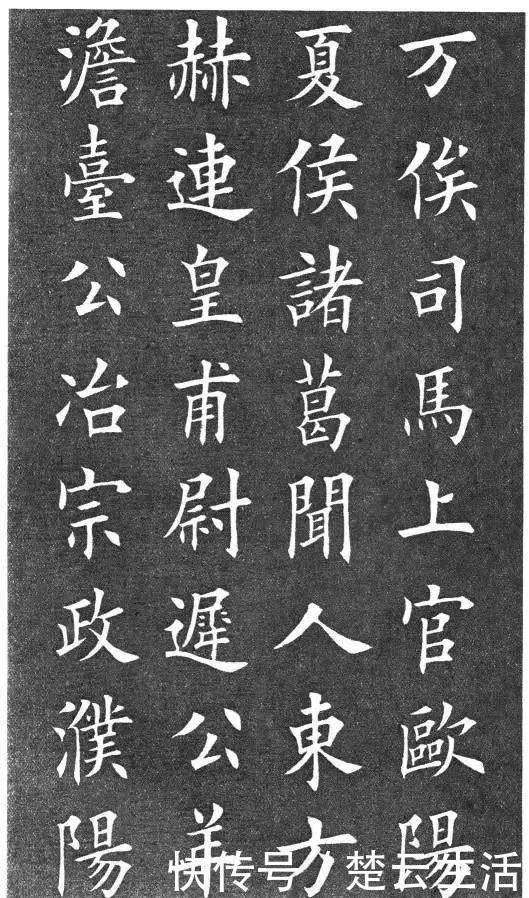 万俟司馬上官歐陽
夏侯諸葛聞人東方
赫連皇甫尉遲公羊
澹臺公冶宗政濮陽
快传号/楚云生活